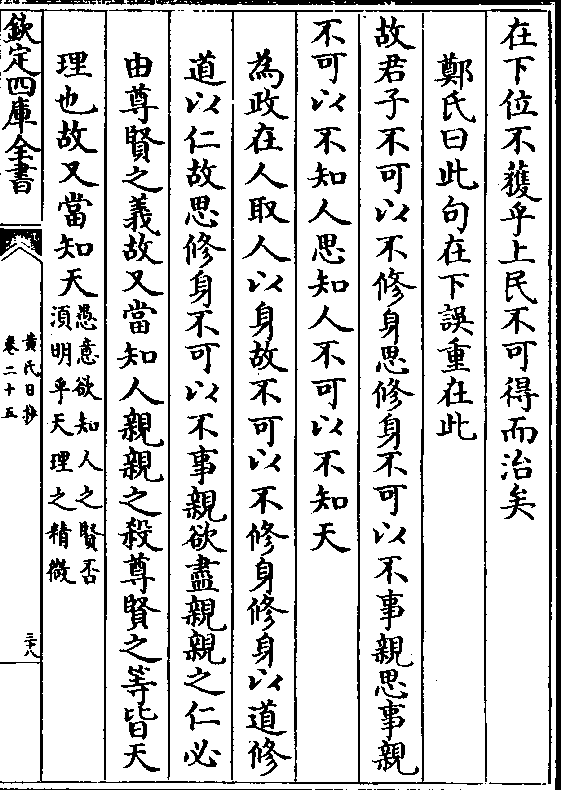 在下位不獲乎上民不可得而治矣
鄭氏曰此句在下誤重在此
故君子不可以不修身思修身不可以不事親思事親
不可以不知人思知人不可以不知天
為政在人取人以身故不可以不修身修身以道修
道以仁故思修身不可以不事親欲盡親親之仁必
由尊賢之義故又當知人親親之殺尊賢之等皆天
理也故又當知天
愚意欲知人之賢否
須明乎天理之精微
欽定四庫全書
黄氏日抄
卷二十五
三十八